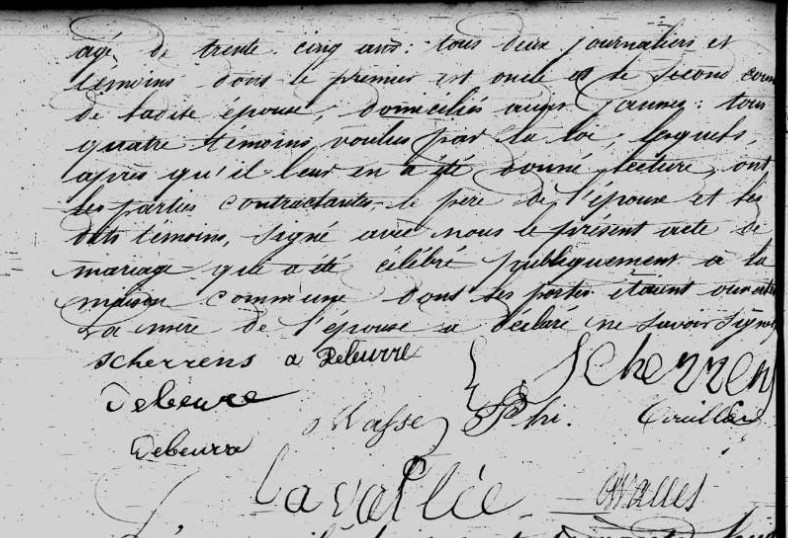 agé de trente cinq ans: tous deux journaliers et
témoins dont le premier est oncle et le second cou
de ladite épouse, domiciliés aussi : tous
quatre témoins voulus par la loi, lesquels,
après qu'il leur en a été donné lecture, ont
les parties contractantes, le père de l'épouse et les
dits témoins, signé avec nous le présent acte de
mariage que a été célébré publiquement à la
maison commune dont les portes étaient
La mère de l'épouse a déclaré ne savoir signer
Scherrens a Debeurre
Scherrens
Debeure
Masse Ph.
Debeurre
Lavallée